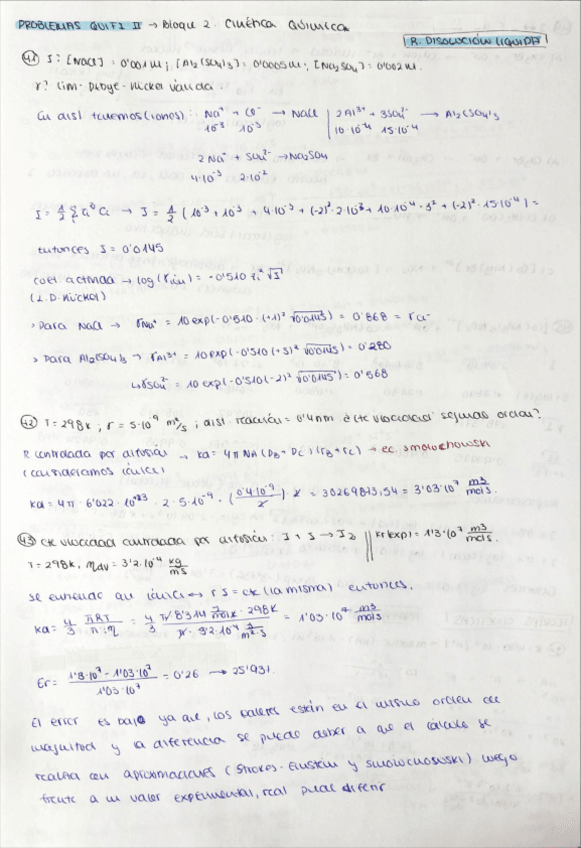 PROBLEMAS QUIFI II → Bloque 2. Cinética Química
R. DISOLUCIÓN LÍQUIDA
41 I: [NaCl] = 0'001 M; [Al2(SO4)3] = 0'0005 M; [Na2SO4] = 0'002 M.
γ? Lím- Debye-Hückel válida.
En disl tenemos (iones): Na+ + Cl- → NaCl | 2Al3+ + 3SO4 2- → Al2(SO4)3
10-3 10-3 10·10-4 15·10-4
2 Na+ + SO4 2- → Na2SO4
4·10-3 2·10-2
I = 1/2 Σ Ci → I = 1/2 (10-3 + 10-3 + 4·10-3 + (-2)2·2·10-3 + 10·10-4·32 + (-2)2·15·10-4) =
entonces I = 0'0145
coef actividad → log(γ) = -0'510 √I
(L.D. Hückel)
> Para NaCl → γNa+ = 10exp(-0'510·(+1)2 √0'0145) = 0'868 = γCl-
> Para Al2(SO4)3 → γAl3+ = 10exp(-0'510 (+3)2 √0'0145) = 0'280
↳ γSO4 2- = 10 exp(-0'510(-2)2 √0'0145) = 0'568
42 T = 298K; = 5·10-9 m2/s; dist reacción = 0'4 nm ¿cte velocidad segundo orden?
R controlada por difusión → kd = 4π NA (DB + DC)(rB + rC) → ec. Smoluchowski
(consideramos iónica)
kd = 4π · 6'022·10 23 · 2·5·10-9 · (0'4·10-9/2) · 2 = 30269813,54 = 3'03·107 m3/mol·s
43 cte velocidad controlada por difusión: I + I → I2 || kr(exp) = 1'3·107 m3/mol·s.
T = 298K, = 3'2·10-4 kg/m·s
se entiende que ↔ r's = cte (la misma) entonces,
kd = = 4/3 · 8'314 · 298K / 3'2·10-4 = 1'03·107 m3/mol·s
Er = 1'3·107 - 1'03·107 / 1'03·107 = 0'26 →
El error es bajo ya que, los valores están en el mismo orden de
magnitud y la diferencia se puede deber a que el cálculo se
realiza con aproximaciones (Stokes-Einstein y Smoluchowski) luego
frente a un valor experimental, real puede diferir